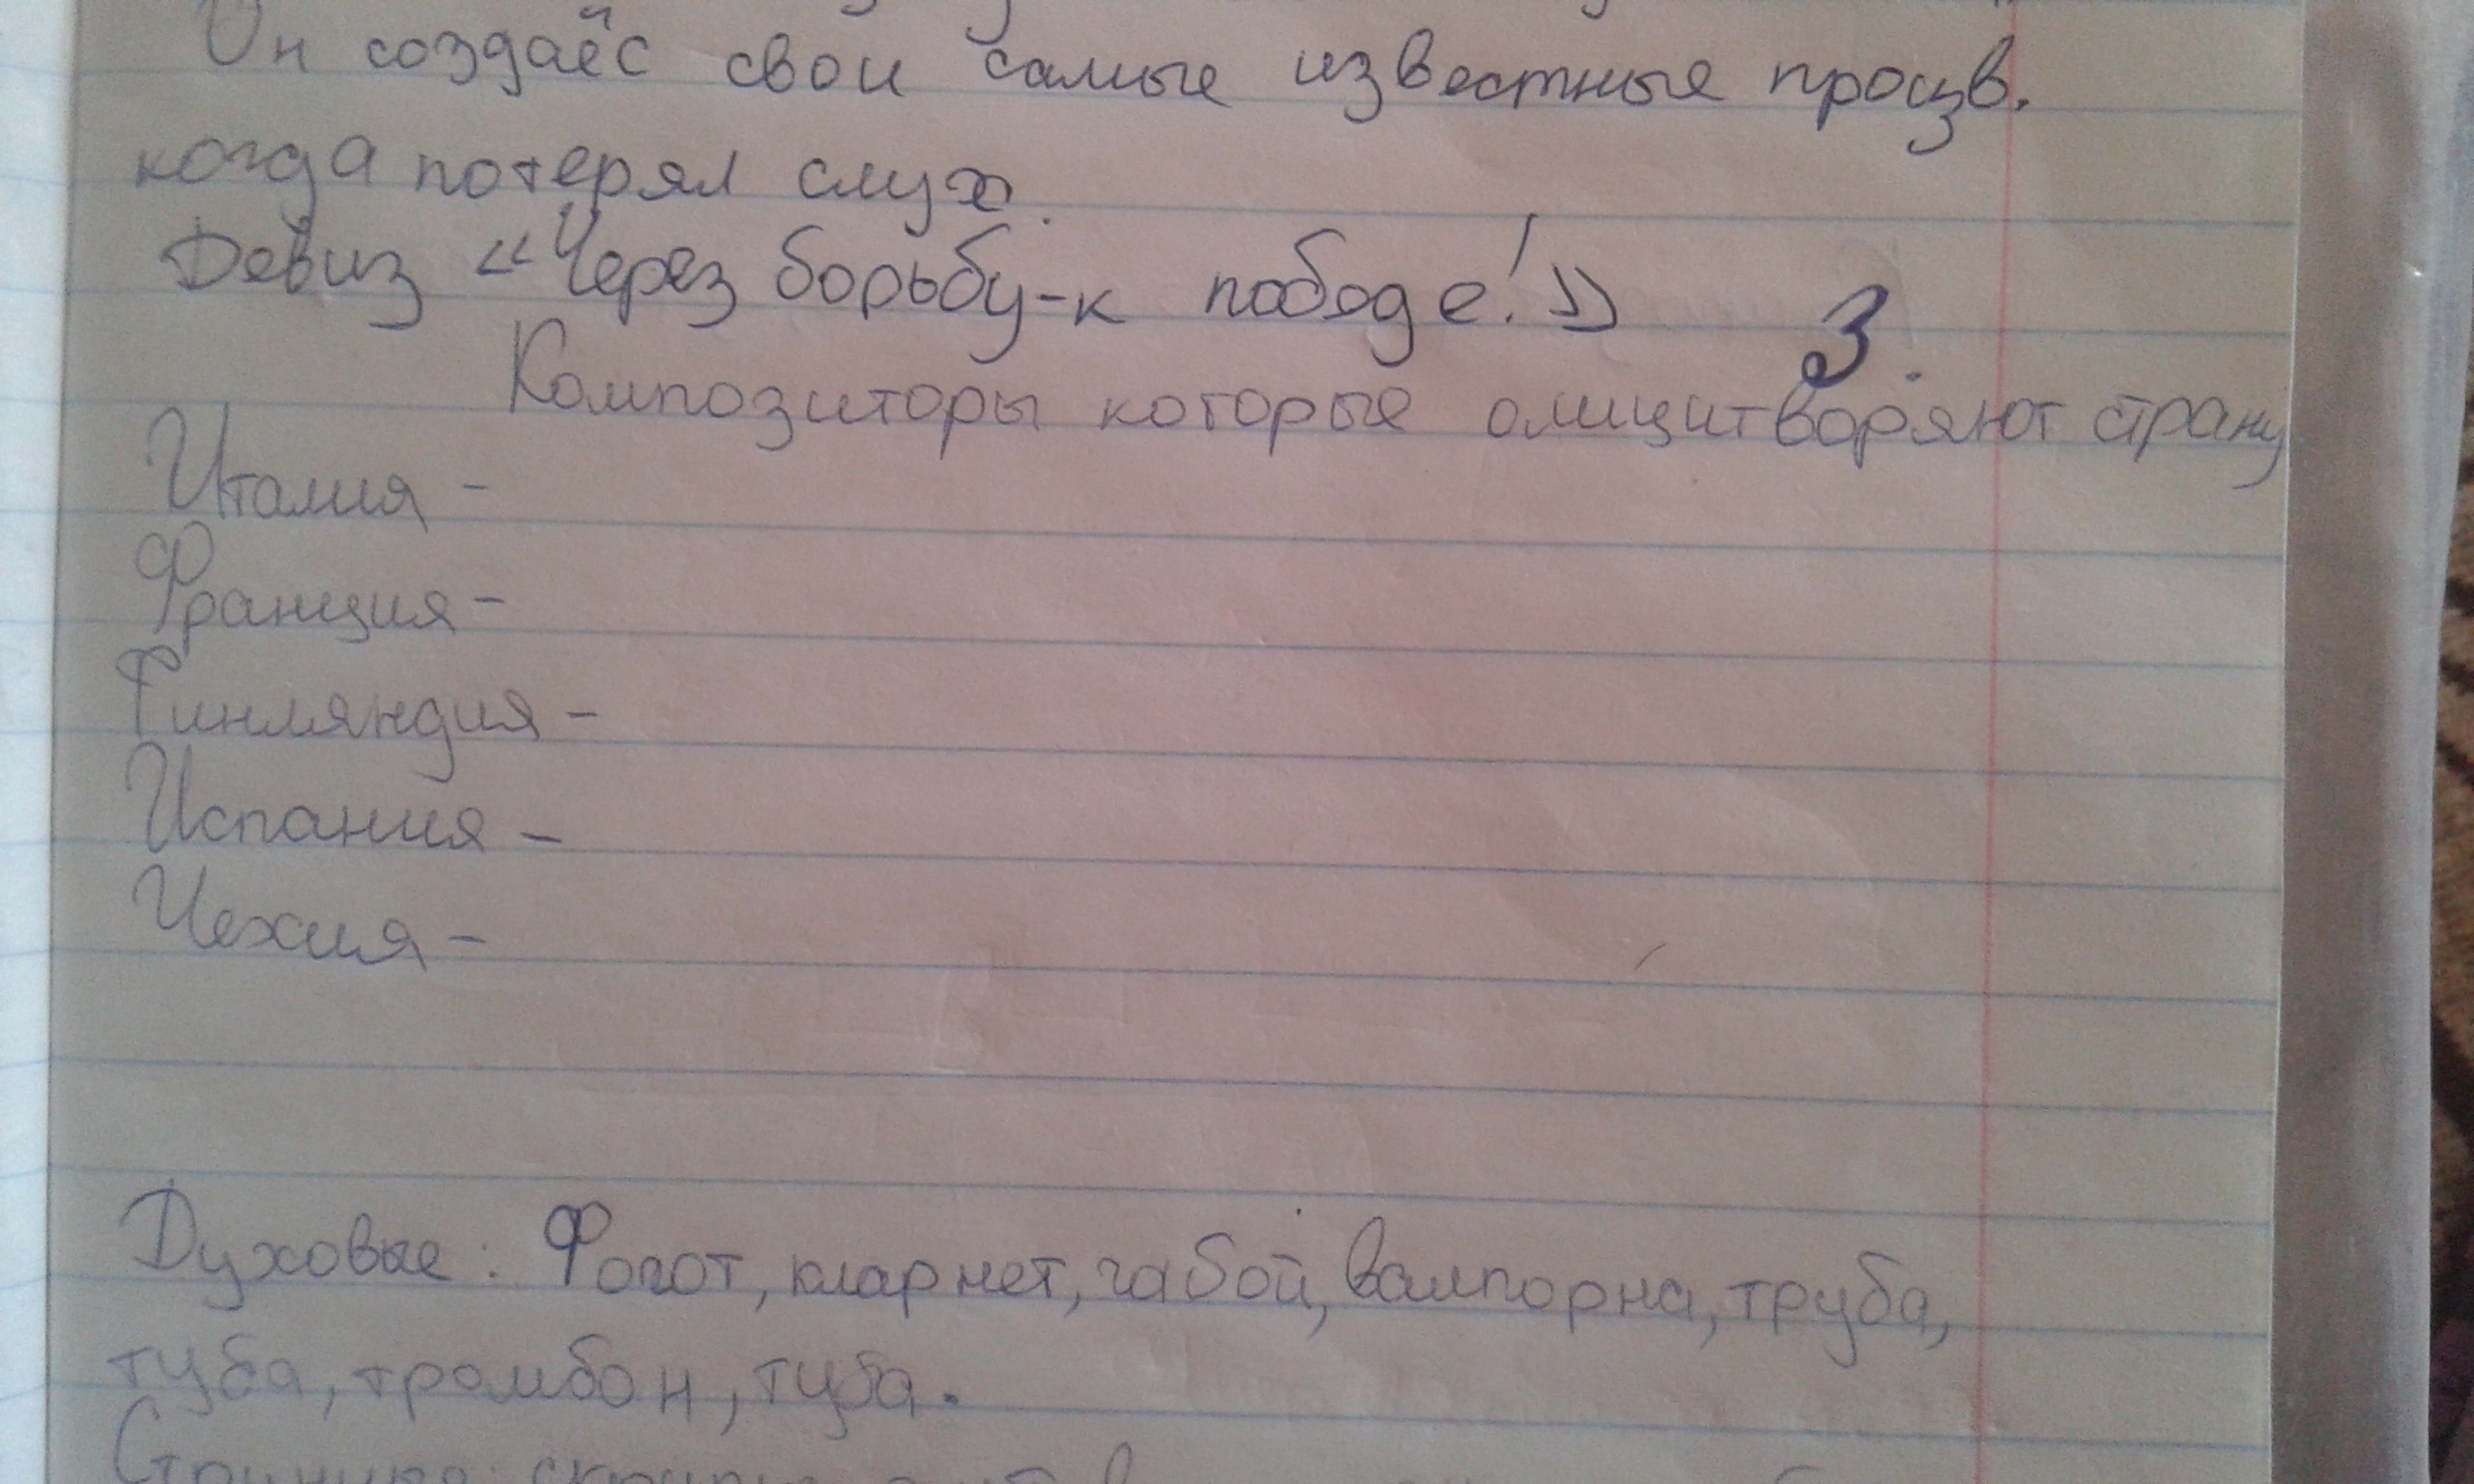 Он создаёс свои самые известные произв.
когда потерял слух.
Девиз «Через борьбу-к пободе!»
3.
Композиторы которые олицитворяют страну
Италия -
Франция -
Финляндия -
Испания -
Чехия -
Духовые: Фогот, кларнет, габой, валпорна, труба,
туба, тромбон, туба.